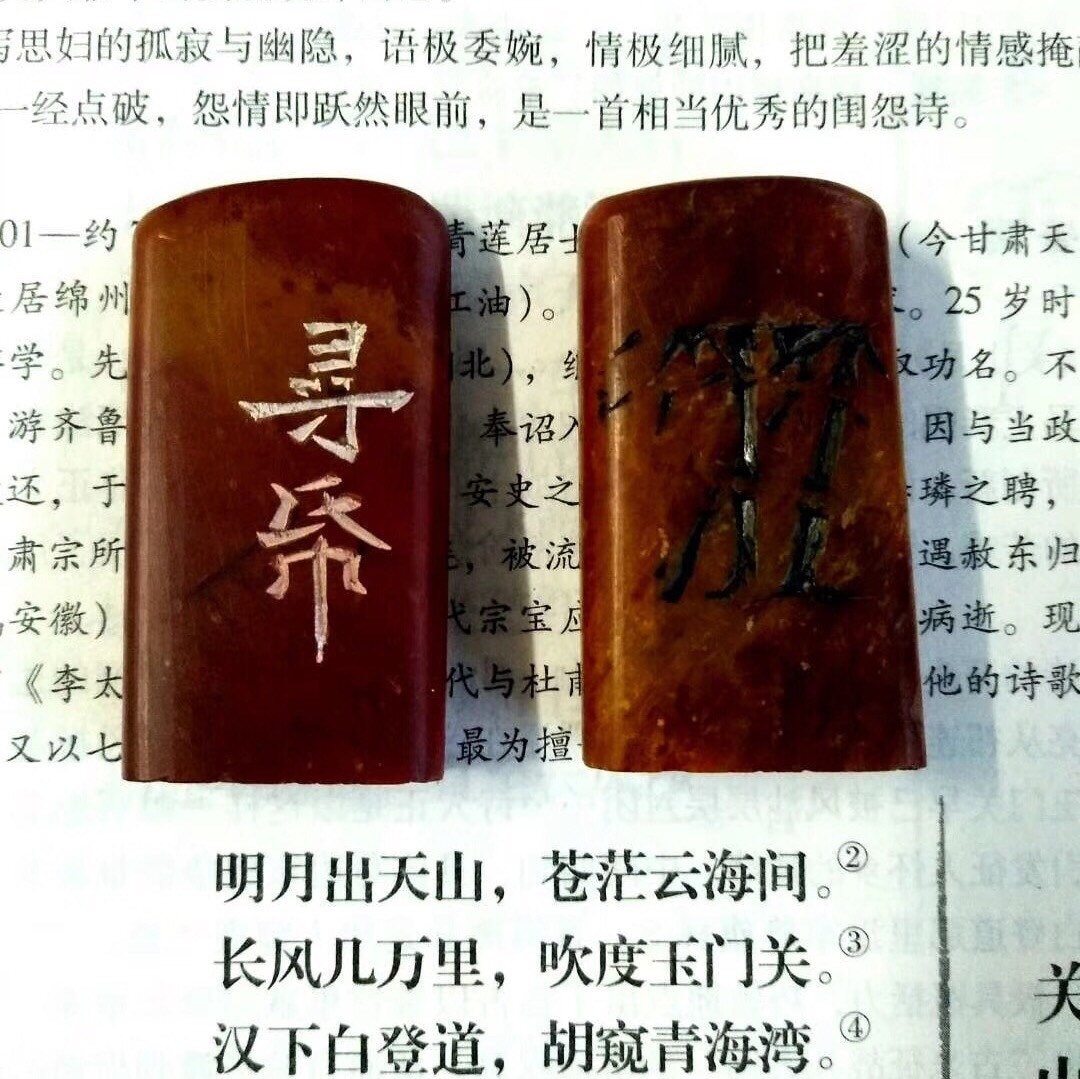 写思妇的孤寂与幽隐，语极委婉，情极细腻，把羞涩的情感掩
一经点破，怨情即跃然眼前，是一首相当优秀的闺怨诗。
01—约 青莲居士 （今甘肃天
居绵州 江油）。 。25 岁时
学。先 北）， 取功名。不
游齐鲁 奉诏入 因与当政
还，于 安史之 璘之聘，
肃宗所 ，被流 遇赦东归
安徽） 代宗宝应 病逝。现
《李太 代与杜甫 他的诗歌
又以七 最为擅
寻
帋
明月出天山，苍茫云海间。②
长风几万里，吹度玉门关。③
汉下白登道，胡窥青海湾。④
关